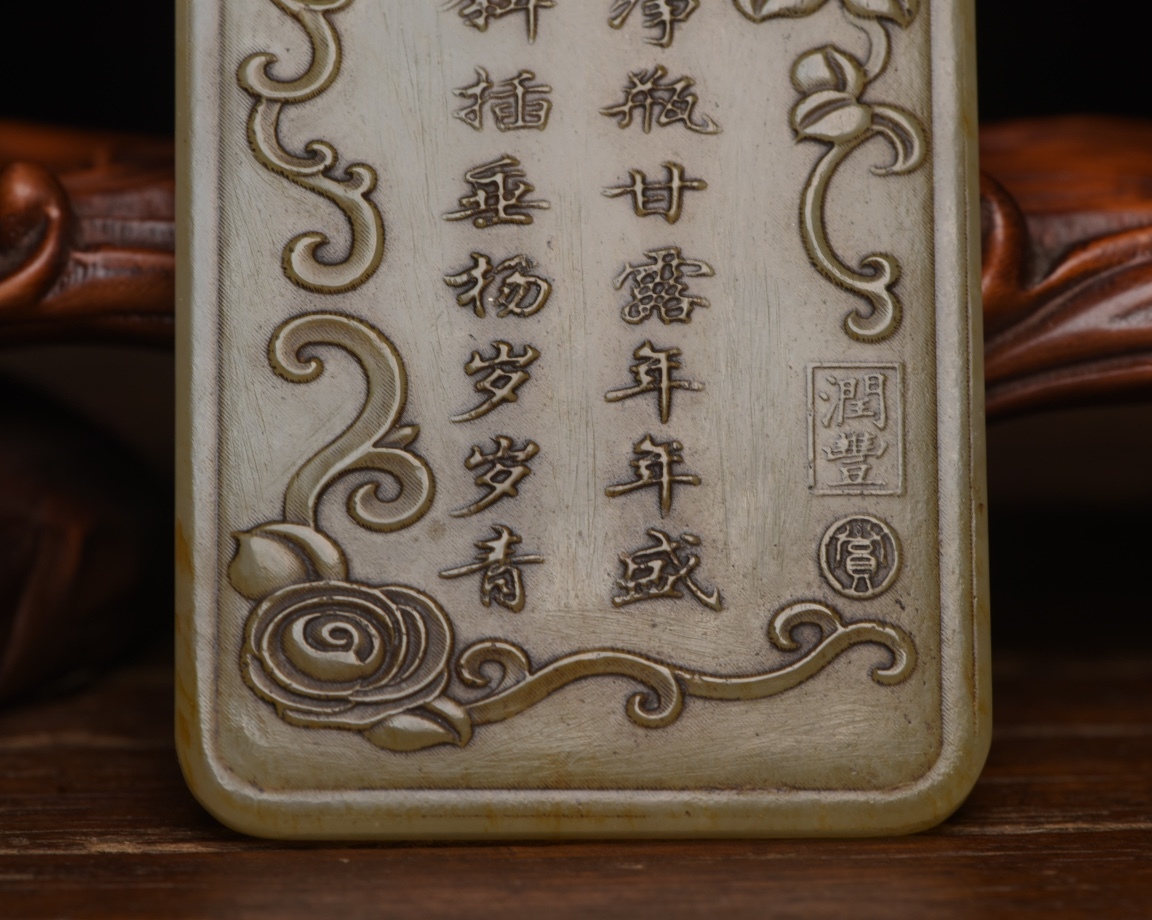 潤豐
賞
净瓶甘露年年盛
斜插垂杨岁岁青